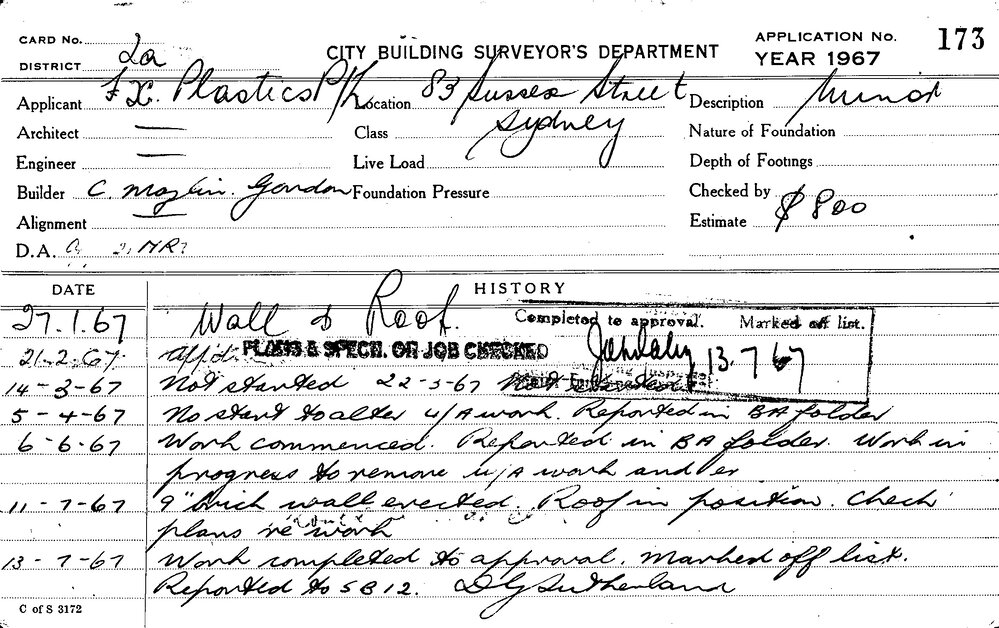 CARD No.
CITY BUILDING SURVEYOR'S DEPARTMENT
APPLICATION No. 173
DISTRICT 2a
YEAR 1967
Applicant F.X. Plastics P/L Location 83 Sussex Street Description Minor
Architect — Class Sydney Nature of Foundation
Engineer — Live Load Depth of Footings
Builder C. Mazlin. Gordon Foundation Pressure Checked by
Alignment — Estimate $800
D.A.
DATE HISTORY
27.1.67 Wall & Roof.
Completed to approval. Marked off list.
21-2-67 Appd. PLANS & SPECN. OR JOB CHECKED 13.7.67
14-3-67 Not started 22-3-67
5-4-67 No start to alter u/A work. Reported in BA folder
6-6-67 Work commenced. Reported in BA folder. Work in
progress to remove u/A work and er
11-7-67 9" brick wall erected. Roof in position. Check
plans re work
13-7-67 Work completed to approval. Marked off list.
Reported to SB12. DG Sutherland
C of S 3172